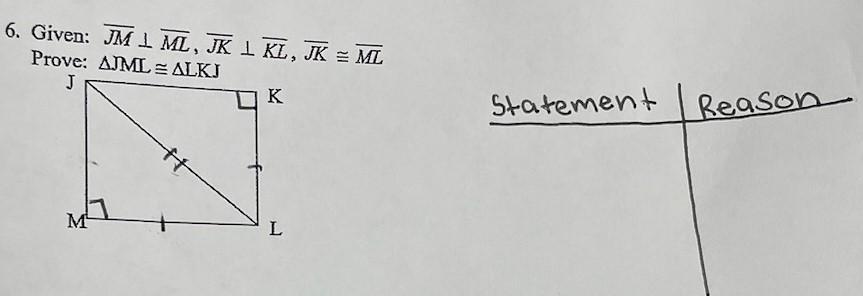 6. Given: JM ⊥ ML, JK ⊥ KL, JK ≅ ML
Prove: ΔJML ≅ ΔLKJ
J
K
M
L
Statement Reason